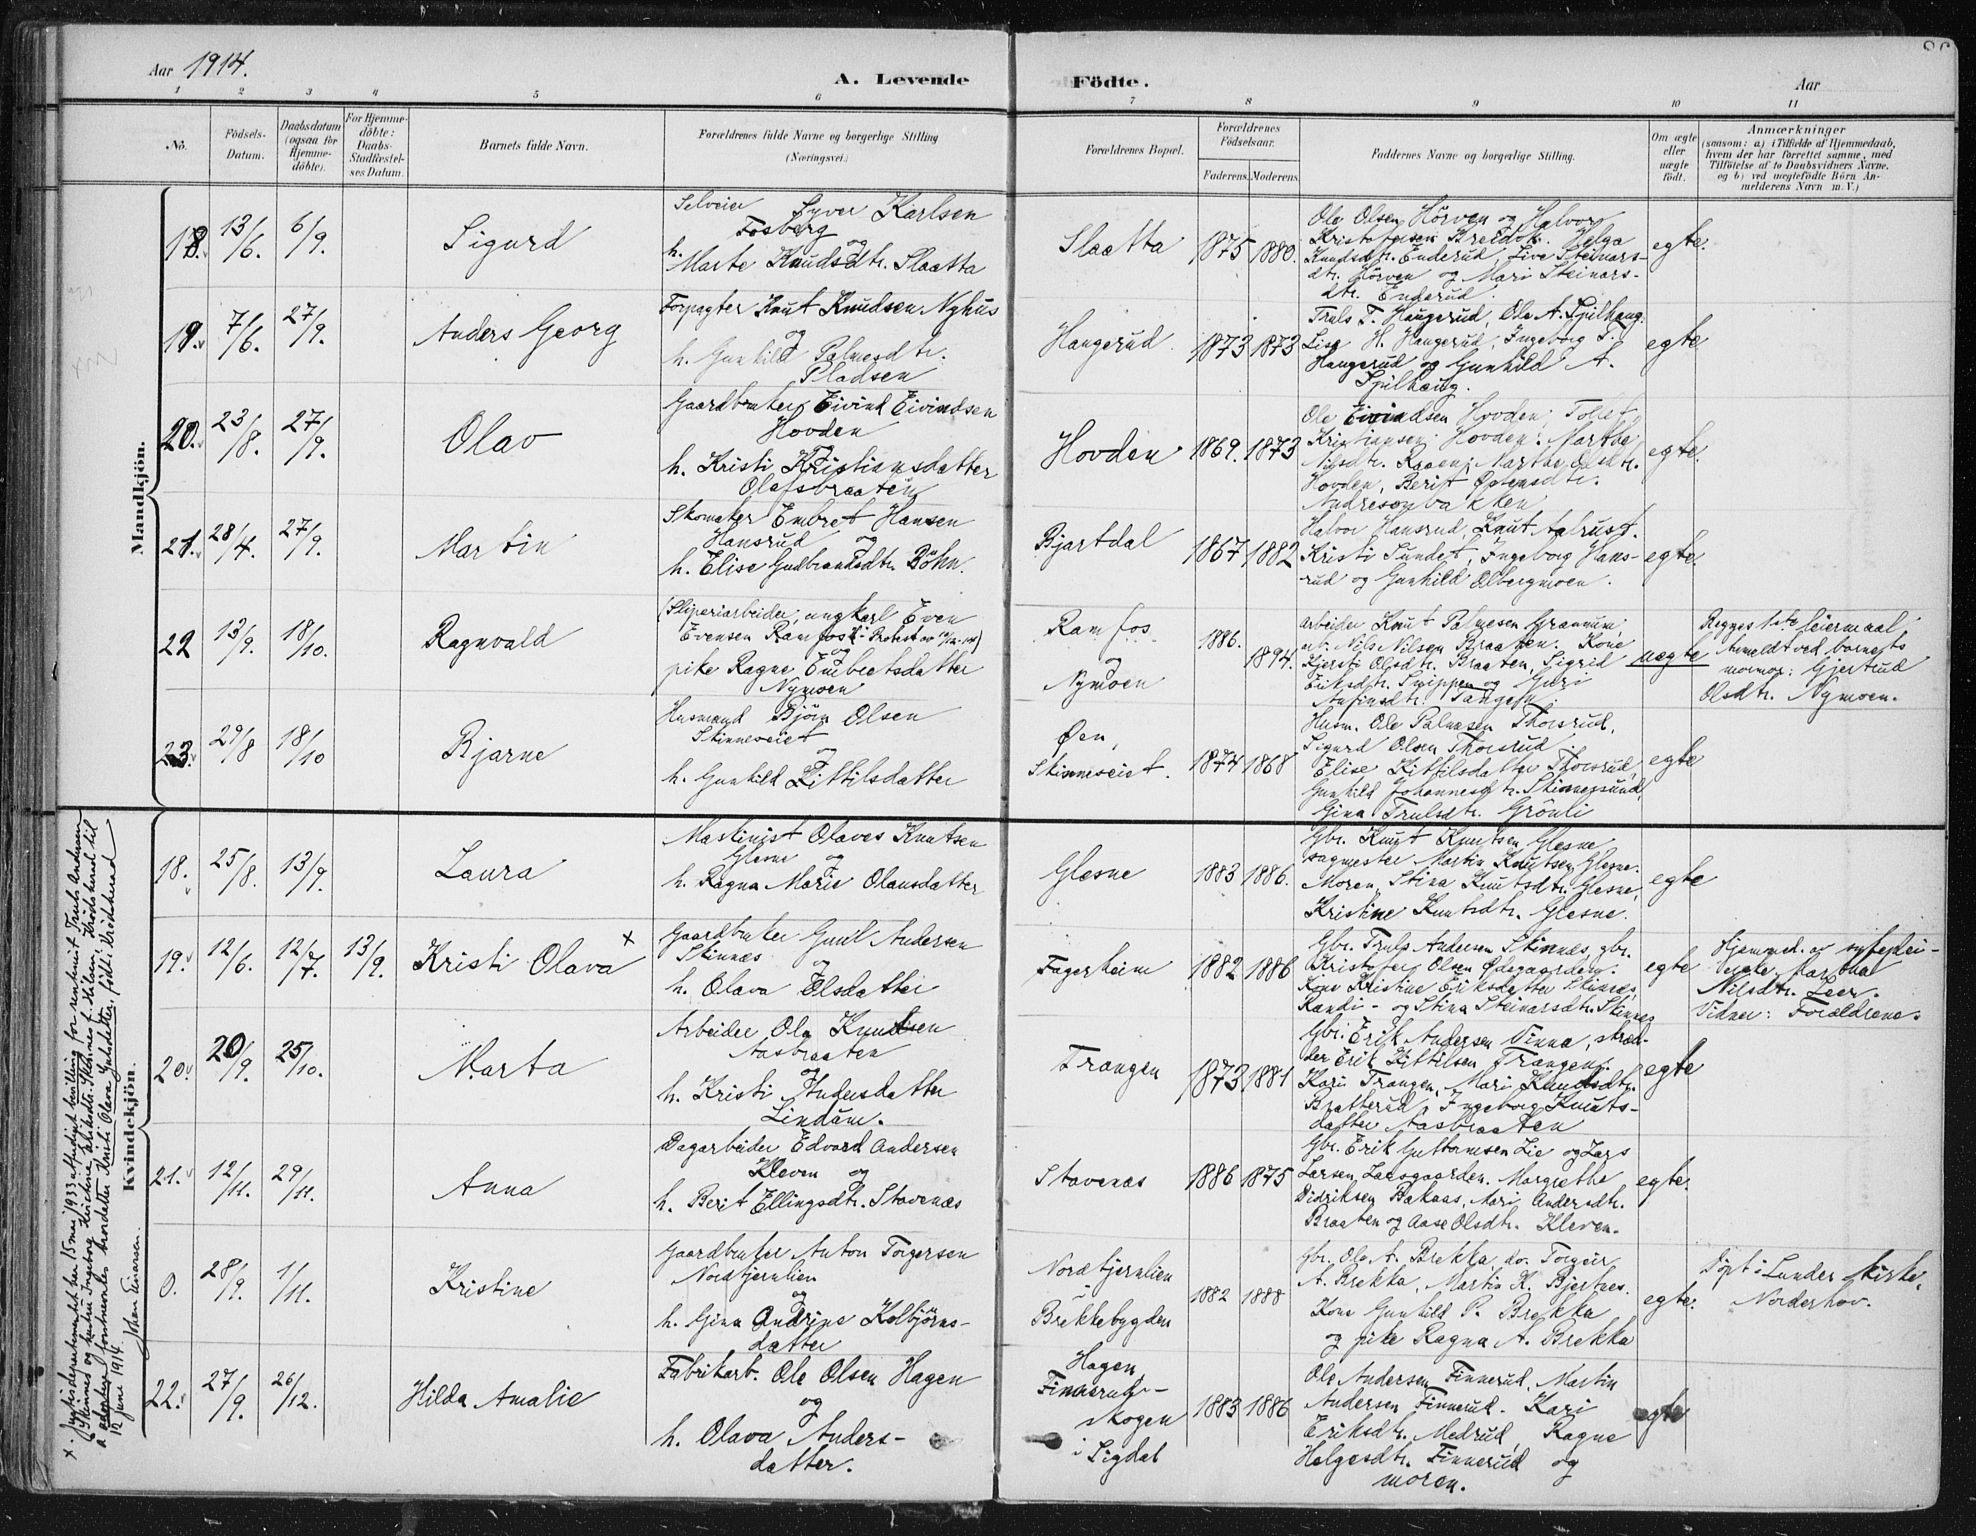 Aar 1914.
A. Levende
Födte.
Aar
1 2 3 4 5 6 7 8 9 10 11
No.
Födsels-
Datum.
Daabsdatum
(ogsaa for
Hjemme-
döbte).
For Hjemme-
döbte:
Daabs-
Stadfæstel-
ses Datum.
Barnets fulde Navn.
Forældrenes fulde Navne og borgerlige Stilling
(Næringsvei.)
Forældrenes Bopæl.
Forældrenes
Födselsaar.
Faderens. Moderens.
Faddernes Navne og borgerlige Stilling.
Om ægte
eller
uægte
födt.
Anmærkninger
(saasom: a) i Tilfælde af Hjemmedaab,
hvem der har forrettet samme, med
Tilföielse af to Daabsvidners Navne,
og b) ved uægtefödte Börn An-
melderens Navn m. V.)
Mandkjön.
18. 13/6. 6/9. Sigurd
Selveier Syver Karlsen
Fosberg
og
h. Marte Knudsdtr. Slaatta
Slaatta 1875 1880.
Ole Olsen Hörven og Halvor
Kristofersen Breidok. Helga
Knudsdtr. Enderud, Live Steinars-
dtr. Hörven og Mari Steinars-
dtr. Enderud.
egte.
19. 7/6. 27/9. Anders Georg
Forpagter Knut Knudsen Nyhus
og
h. Gunhild Palmesdtr.
Pladsen
Haugerud. 1873 1873
Truls T. Haugerud, Ole A. Spilhaug.
Lisa H. Haugerud, Ingeborg T.
Haugerud og Gunhild A.
Spilhaug.
egte
20. 23/8. 27/9. Olav
Gaardbruker Eivind Eivindsen
Hovden
og
h. Kristi Kristiansdatter
Olafsbraaten
Hovden 1869. 1873
Ole Eivindsen Hovden, Tollef
Kristiansen Hovden. Marthe
Nilsdtr. Raaen, Marthe Olsdtr.
Hovden, Berit Östensdtr.
Andresonbakken
egte.
21. 28/4. 27/9. Martin
Skomaker Embret Hansen
Hansrud og
h. Elise Gudbrandsdtr. Böhn.
Bjartdal 1867 1882
Halvor Hansrud, Knut Aalrust.
Kristi Sundet, Ingeborg Hans-
rud og Gunhild Olbergmoen.
egte.
22 13/9. 18/10. Ragnvald
(Sliperiarbeider, ungkarl Even
Evensen Ramfos
og
pike Ragne Embretsdatter
Nymoen
Ramfos
og
Nymoen
1886. 1894.
arbeider Knut Palmesen Grannum,
arb. Nils Nilsen Braaten. Kone
Kjersti Olsdtr. Braaten, Sigrid
Eriksdtr. Snippen og Guri
Anfinsdtr. Tangen.
uægte
Begges 1ste leiermaal
Anmeldt ved barnets
mormor: Gjertrud
Olsdtr. Nymoen.
23. 29/8 18/10 Bjarne
Husmand Björn Olsen
Skinneseiet
og
h. Gunhild Kittilsdatter
Øen,
Skinneseiet. 1874 1868
Husm. Ole Palmesen Thorsrud,
Sigurd Olsen Thorsrud
Elise Kittilsdatter Thorsrud,
Gunhild Johannesdtr. Skinnessund,
Gina Trulsdtr. Grönli
egte
Kvindekjön.
18. 25/8. 13/9. Laura
Maskinist Olaves Knutsen
Glesne og
h. Ragna Marie Olausdatter
Glesne 1883 1886.
Gbr. Knut Knutsen Glesne
sagmester Martin Knutsen Glesne.
Moren, Stina Knutsdtr. Glesne,
Kristine Knutsdtr. Glesne.
egte
19. 12/6. 12/7. 13/9. Kristi Olava x
Gaardbruker Gul Andersen
Skinnæs
og
h. Olava Olsdatter
Fagerheim 1882 1886
Gbr. Truls Andersen Skinnæs, gbr.
Kristofer Olsen Ødegaarden.
Kone Kristine Eriksdatter Skinnæs,
Randi - og Stina Steinarsdtr. Skinnes
egte
Hjemmed. av sykeplei-
erske Martha
Nilsdtr. Leer.
Vidner: Forældrene.
20. 20/9. 25/10. Marta
Arbeider Ola Knudsen
Aasbraaten
og
h. Kristi Andersdatter
Lindum.
Trangen 1873 1881
Gbr. Erik Andersen Vinna, skræd-
der Erik Kittilsen Trangen.
Kari Trangen, Mari Knudsdtr.
Bratterud, Ingeborg Knuts-
datter Aasbraaten
egte
21. 12/11. 29/11. Anna
Dagarbeider Edvard Andersen
Kleven og
h. Berit Ellingsdtr. Stavenæs
Stavenæs 1886 1875
Gbr. Erik Guttormsen Lie og Lars
Larsen Laasgaarden. Margrethe
Didriksen Bakaas, Mari Andersdtr.
Braaten og Aase Olsdtr. Kleven.
egte.
0. 28/9. 1/11. Kristine
Gaardbruker Anton Torgersen
Nordtjernlien
og
h. Gina Andrine Kolbjörns-
datter
Nordtjernlien
Brekkebygden
1882 1888
Gbr. Ole A. Brekka, do. Torgeir
A. Brekka, Martin K. Bjertnes.
Kone Gunhild P. Brekka
og pike Ragna A. Brekka
egte.
Döpt i Lunder kirke,
Norderhov.
22. 27/9. 26/12. Hilda Amalie
Fabrikarb. Ole Olsen Hagen
og
h. Olava Anders-
datter.
Hagen
Finnerud-
skogen
i Sigdal
1883 1886
Ole Andersen Finnerud, Martin
Andersen Finnerud. Kari
Eriksdtr. Medrud, Ragne
Helgesdtr. Finnerud og
moren.
egte
x. Justisdepartementet har 15 mai 1933 utferdiget bevilling for rentenist Truls Andersen
Skinnes og hustru Ingeborg Kirstine Eriksdtr. Skinnes f. Nilsen, Krødsherad til
å adoptere førstnevntes brordatter Kristi Olava Gulsdatter, född i Krødsherad
12 juni 1914. Johan Einarsen.